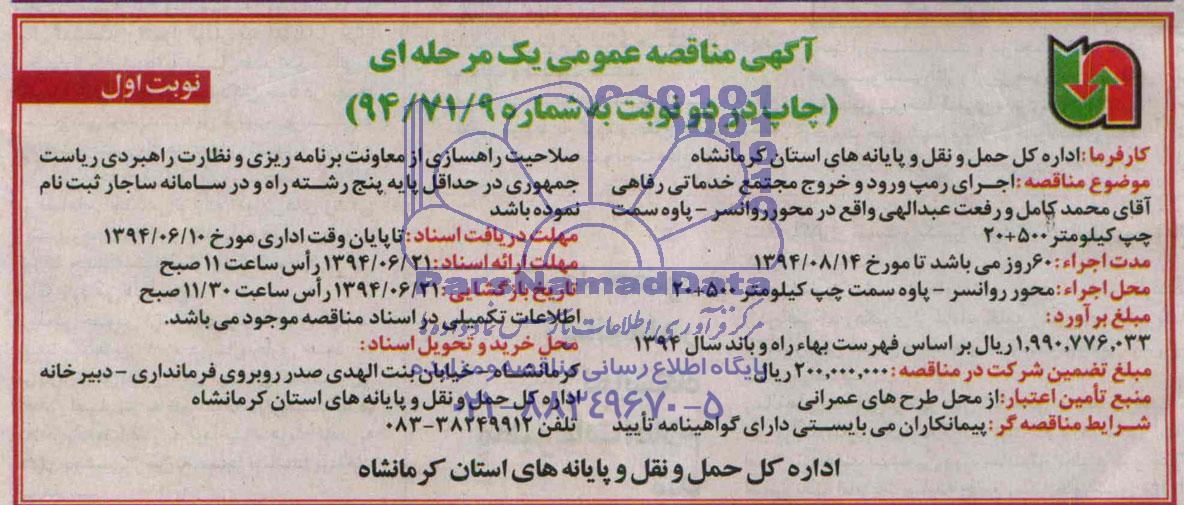 آگهی مناقصه عمومی یک مرحله ای
(چاپ در دو نوبت به شماره ۹۴/۷۱/۹)
نوبت اول
کارفرما: اداره کل حمل و نقل و پایانه های استان کرمانشاه
موضوع مناقصه: اجرای رمپ ورود و خروج مجتمع خدماتی رفاهی
آقای محمد کامل و رفعت عبدالهی واقع در محور روانسر - پاوه سمت
چپ کیلومتر ۵۰۰+۲۰
مدت اجراء: ۶۰ روز می باشد تا مورخ ۱۳۹۴/۰۸/۱۴
محل اجراء: محور روانسر - پاوه سمت چپ کیلومتر ۵۰۰+۲۰
مبلغ برآورد:
۱,۹۹۰,۷۷۶,۰۳۳ ریال بر اساس فهرست بهاء راه و باند سال ۱۳۹۴
مبلغ تضمین شرکت در مناقصه: ۲۰۰,۰۰۰,۰۰۰ ریال
منبع تأمین اعتبار: از محل طرح های عمرانی
شرایط مناقصه گر: پیمانکاران می بایستی دارای گواهینامه تأیید
صلاحیت راهسازی از معاونت برنامه ریزی و نظارت راهبردی ریاست
جمهوری در حداقل پایه پنج رشته راه و در سامانه ساجار ثبت نام
نموده باشد
مهلت دریافت اسناد: تا پایان وقت اداری مورخ ۱۳۹۴/۰۶/۱۰
مهلت ارائه اسناد: ۱۳۹۴/۰۶/۲۱ رأس ساعت ۱۱ صبح
تاریخ بازگشایی: ۱۳۹۴/۰۶/۲۱ رأس ساعت ۱۱/۳۰ صبح
اطلاعات تکمیلی در اسناد مناقصه موجود می باشد.
محل خرید و تحویل اسناد:
کرمانشاه - خیابان بنت الهدی صدر روبروی فرمانداری - دبیرخانه
اداره کل حمل و نقل و پایانه های استان کرمانشاه
تلفن ۳۸۲۴۹۹۱۲-۰۸۳
اداره کل حمل و نقل و پایانه های استان کرمانشاه
ParsNamadData
مرکز فرآوری اطلاعات پارس نماد داده ها
پایگاه اطلاع رسانی مناقصه و مزایده
۰۲۱-۸۸۳۴۹۶۷۰-۵